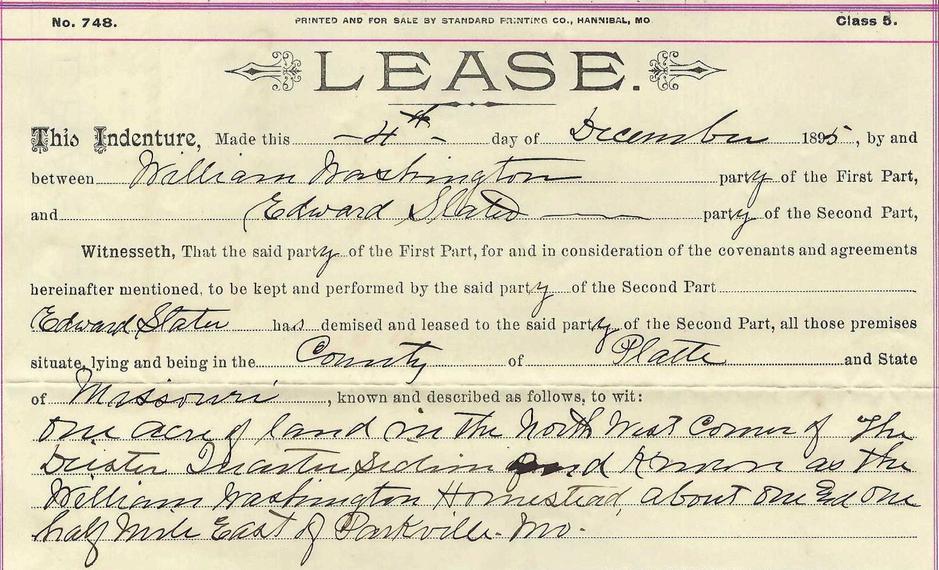 No. 748. PRINTED AND FOR SALE BY STANDARD PRINTING CO., HANNIBAL, MO Class 5.
LEASE.
This Indenture, Made this 4th day of December 1895, by and
between William Washington party of the First Part,
and Edward Slater party of the Second Part,
Witnesseth, That the said party of the First Part, for and in consideration of the covenants and agreements
hereinafter mentioned, to be kept and performed by the said party of the Second Part
Edward Slater has demised and leased to the said party of the Second Part, all those premises
situate, lying and being in the County of Platte and State
of Missouri, known and described as follows, to wit:
One acre of land in the North West Corner of The
Quarter Section and Known as the
William Washington Homestead, about one End one
half Mile East of Parkville. Mo.